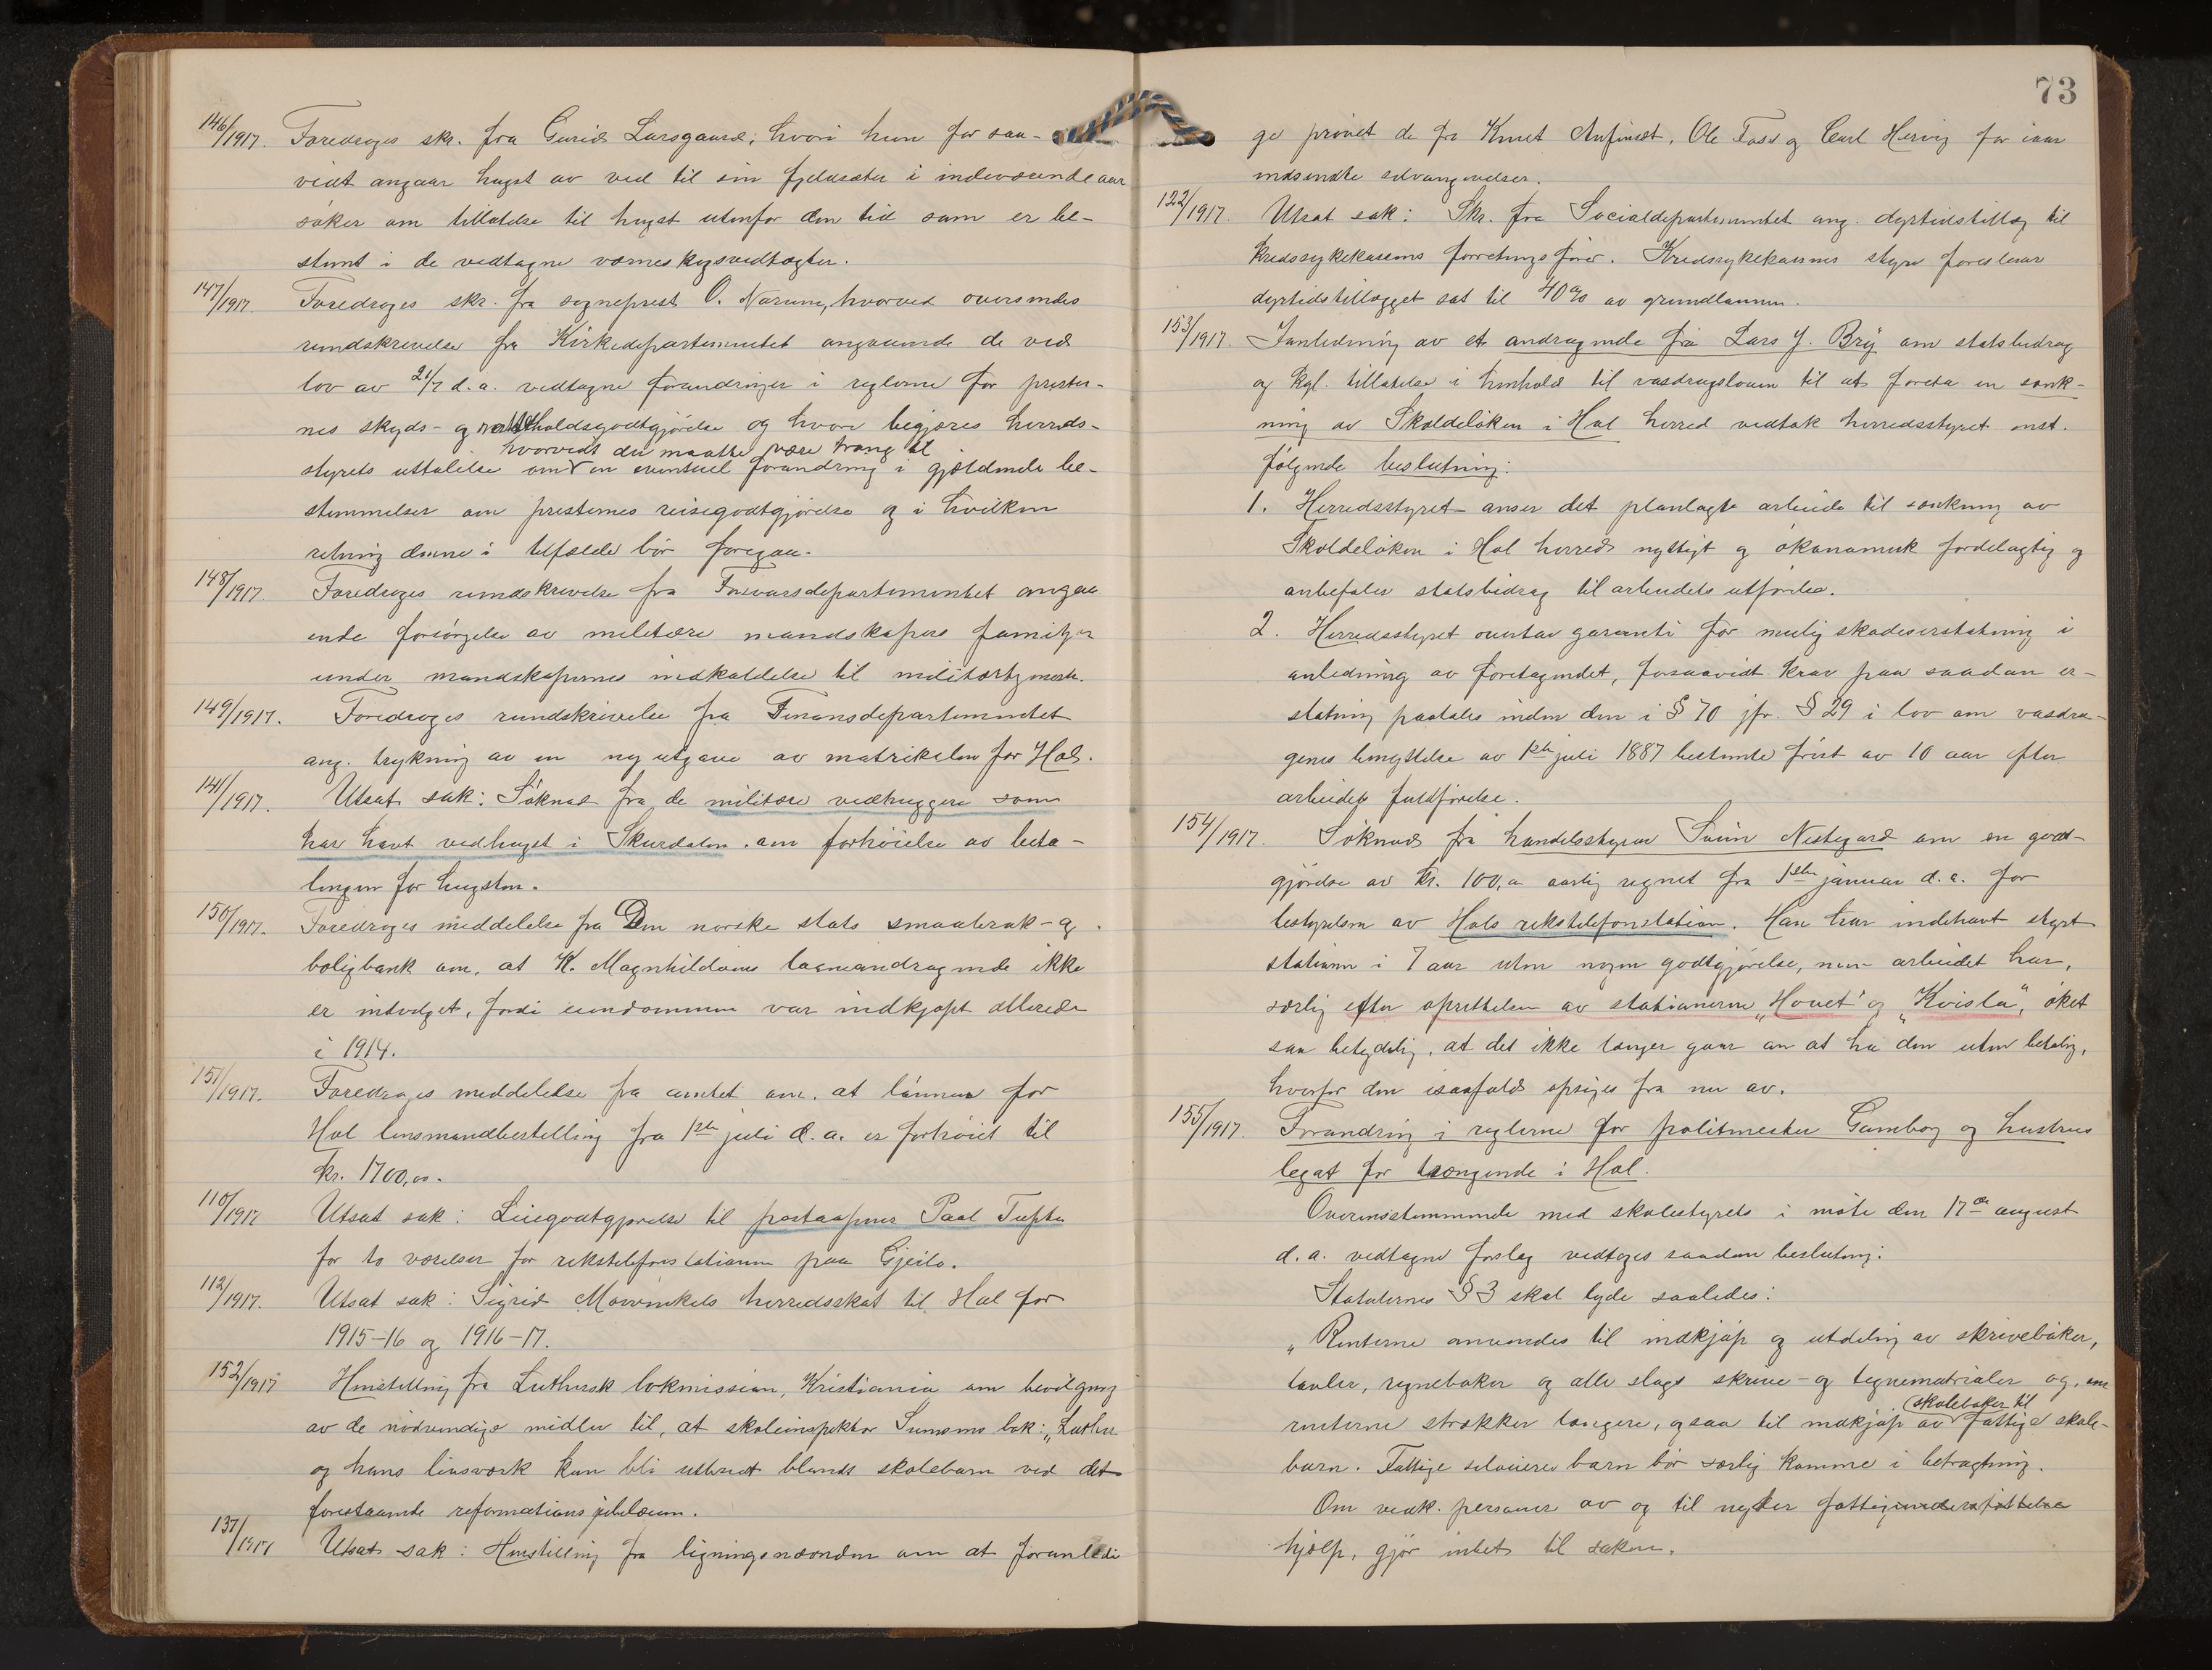 146/1917. Foredroges skr. fra Gurid Larsgaard, hvori hun for saa-
vidt angaar hugst av ved til sin fjeldsæter i indeværende aar
søker om tillatelse til hugst utenfor den tid som er be-
stemt i de vedtagne verneskogsvedtægter.
147/1917. Foredroges skr. fra sogneprest O. Narum, hvorved oversendes
rundskrivelse fra Kirkedepartementet angaaende de ved
lov av 21/7 d.a. vedtagne forandringer i reglerne for prester-
nes skyds- og kostholdsgodtgjørelse og hvori begjæres herreds-
hvorvidt der maatte være trang til
styrets uttalelse om en eventuel forandring i gjeldende be-
stemmelser om presternes reisegodtgjørelse og i hvilken
retning denne i tilfælde bør foregaa.
148/1917. Foredroges rundskrivelse fra Forsvarsdepartementet angaa
ende forsørgelse av militære mandskapers familjer
under mandskapernes indkaldelse til militærtjeneste.
149/1917. Foredroges rundskrivelse fra Finansdepartementet
ang. trykning av en ny utgave av matrikelen for Hol.
141/1917. Utsat sak: Søknad fra de militære vedhuggere som
har havt vedhuget i Skurdalen om forhøielse av beta-
lingen for hugsten.
150/1917. Foredroges meddelelse fra Den norske stats smaabruk- og
boligbank om, at K. Magnhildøens laaneandragende ikke
er indvilget, fordi eiendommen var indkjøpt allerede
i 1914.
151/1917. Foredroges meddelelse fra amtet om, at lønnen for
Hol lensmandbestilling fra 1ste juli d.a. er forhøiet til
kr. 1700,00.
110/1917 Utsat sak: Leiegodtgjørelse til postaapner Paal Tufte
for to værelser for rikstelefonstationen paa Gjeilo.
112/1917. Utsat sak: Sigrid Mowinkels herredsskat til Hol for
1915-16 og 1916-17.
152/1917 Henstilling fra Luthersk bokmission, Kristiania om bevilgning
av de nødvendige midler til, at skoleinspektør bok: „Luther
og hans livsverk kan bli utbredt blandt skolebarn ved det
forestaaende reformationsjubilæum.
137/1917 Utsat sak: Henstilling fra ligningsnævnden om at foranledi
73
ge prøvet de fra Knut Anfinset, Ole Foss og Carl Hervig for iaar
indsendte selvangivelser.
122/1917. Utsat sak: Skr. fra Socialdepartementet ang. dyrtidstillæg til
kredssykekassens forretningsfører. Kredssykekassens styre foreslaar
dyrtidstillægget sat til 40% av grundlønnen.
153/1917. I anledning av et andragende fra Lars J. Bry om statsbidrag
og kgl. tillatelse i henhold til vasdragsloven til at foreta en senk-
ning av Skoldeløken i Hol herred vedtok herredsstyret enst.
følgende beslutning:
1. Herredsstyret anser det planlagte arbeide til senkning av
Skoldeløken i Hol herred nyttigt og økonomisk fordelagtig og
anbefaler statsbidrag til arbeidets utførelse.
2. Herredsstyret overtar garanti for mulig skadeserstatning i
anledning av foretagendet, forsaavidt krav paa saadan er-
statning paatales inden den i § 70 jfr. § 29 i lov om vasdra-
genes benyttelse av 1ste juli 1887 bestemte frist av 10 aar efter
arbeidets fuldførelse.
154/1917. Søknad fra handelsstyrer Svein Nestegard om en godt-
gjørelse av kr. 100,00 aarlig regnet fra 1ste januar d.a. for
bestyrelsen av Hols rikstelefonstation. Han har indehavt styret
stationen i 7 aar uten nogen godtgjørelse, men arbeidet har,
særlig efter oprettelsen av stationerne „Hovet" og „Kvisla", øket
saa betydelig, at det ikke længer gaar an at ha den uten betaling,
hvorfor den isaafald opsiges fra nu av.
155/1917. Forandring i reglerne for politmester Gamborg og hustrus
legat for trængende i Hol.
Overensstemmende med skolestyrets i møte den 17de august
d.a. vedtagne forslag vedtoges saadan beslutning:
Statuternes § 3 skal lyde saaledes:
„Renterne anvendes til indkjøp og utdeling av skrivebøker,
tavler, regnebøker og alle slags skrive- og tegnematrialer og, om
(skolebøker til
renterne strækker længere, ogsaa til indkjøp av fattige skole-
barn. Fattige barn bør særlig komme i betragtning.
Om vedk. personer av og til nyter fattigunderstøttelse
hjelp, gjør intet til saken.